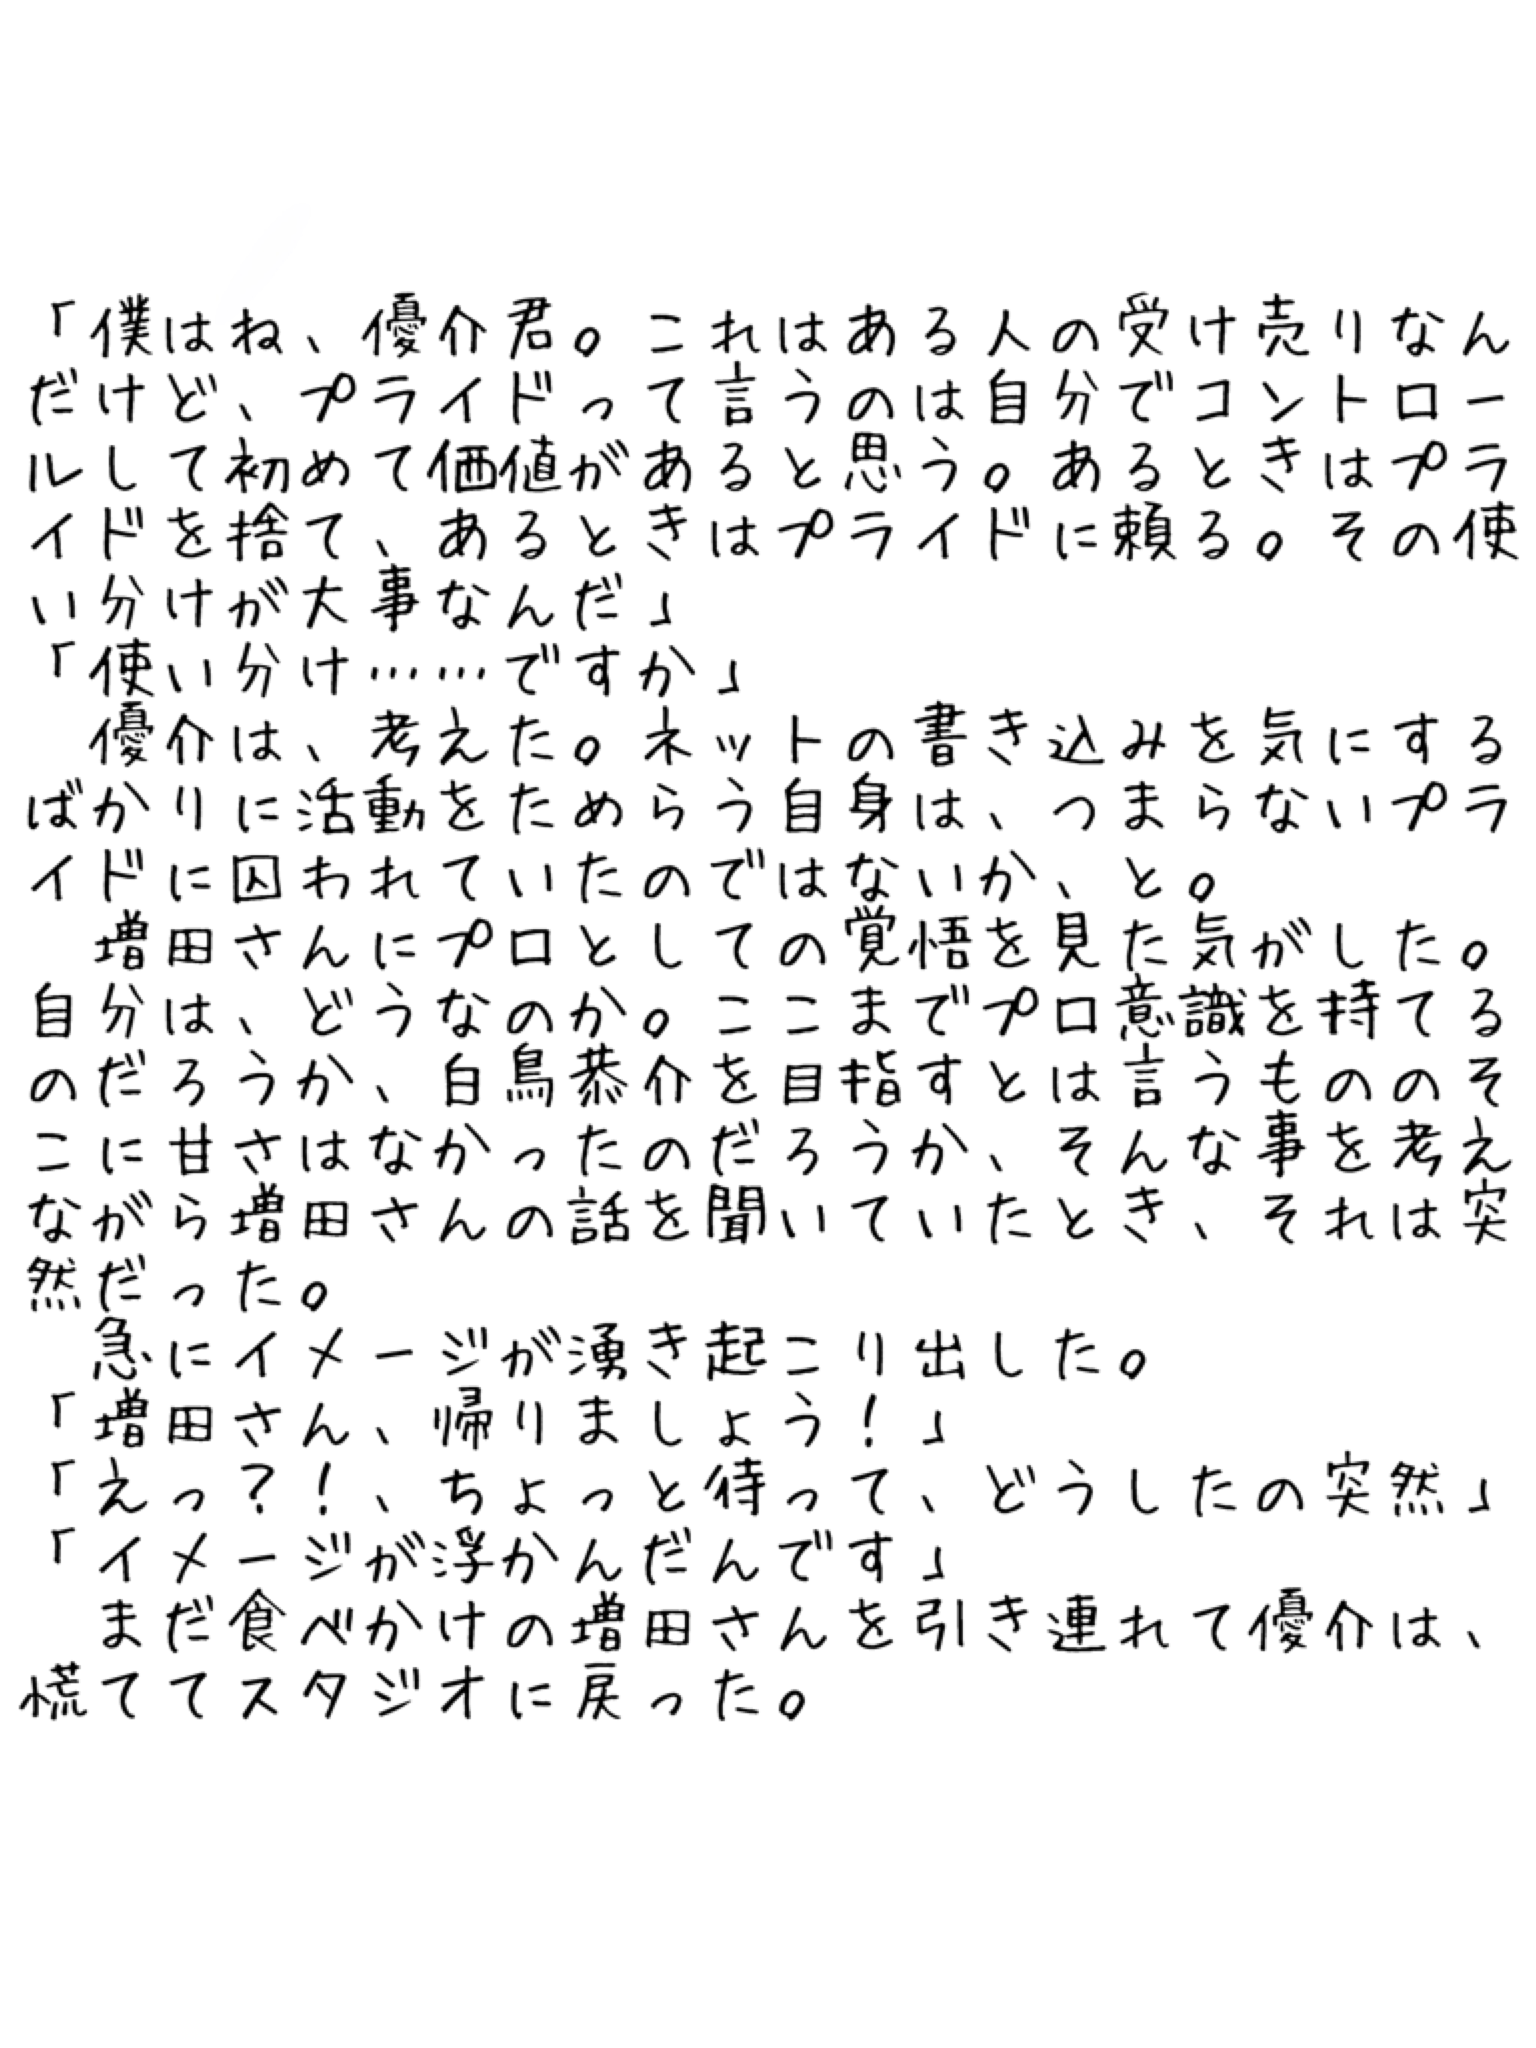 「僕はね、優介君。これはある人の受け売りなん
だけど、プライドって言うのは自分でコントロー
ルして初めて価値があると思う。あるときはプラ
イドを捨て、あるときはプライドに頼る。その使
い分けが大事なんだ」
「使い分け……ですか」
　優介は、考えた。ネットの書き込みを気にする
ばかりに活動をためらう自身は、つまらないプラ
イドに囚われていたのではないか、と。
　増田さんにプロとしての覚悟を見た気がした。
自分は、どうなのか。ここまでプロ意識を持てる
のだろうか、白鳥恭介を目指すとは言うもののそ
こに甘さはなかったのだろうか、そんな事を考え
ながら増田さんの話を聞いていたとき、それは突
然だった。
　急にイメージが湧き起こり出した。
「増田さん、帰りましょう！」
「えっ？！、ちょっと待って、どうしたの突然」
「イメージが浮かんだんです」
　まだ食べかけの増田さんを引き連れて優介は、
慌ててスタジオに戻った。